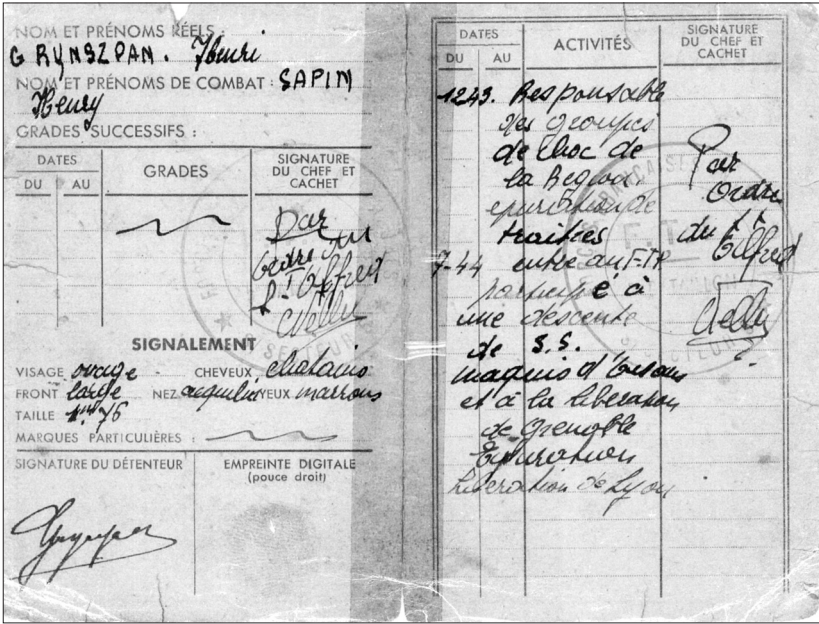 NOM ET PRÉNOMS RÉELS :
GRYNSZPAN. Henri
NOM ET PRÉNOMS DE COMBAT : SAPIN
Henry
GRADES SUCCESSIFS :
DATES
DU AU
GRADES
SIGNATURE
DU CHEF ET
CACHET
Par
ordre du
Lt
SIGNALEMENT
VISAGE CHEVEUX chatains
FRONT large NEZ aquilin YEUX marrons
TAILLE 1m76
MARQUES PARTICULIÈRES :
SIGNATURE DU DÉTENTEUR
EMPREINTE DIGITALE
(pouce droit)
DATES
DU AU
ACTIVITÉS
SIGNATURE
DU CHEF ET
CACHET
1243. Responsable
des groupes
de choc de
la Region.
epuration de
traitres
7-44 entre au F.T.P.
participe à
une descente
de S.S.
maquis d'
et à la liberation
de Grenoble
Epuration
liberation de Lyon
Par
ordre
du Lt
F.T.